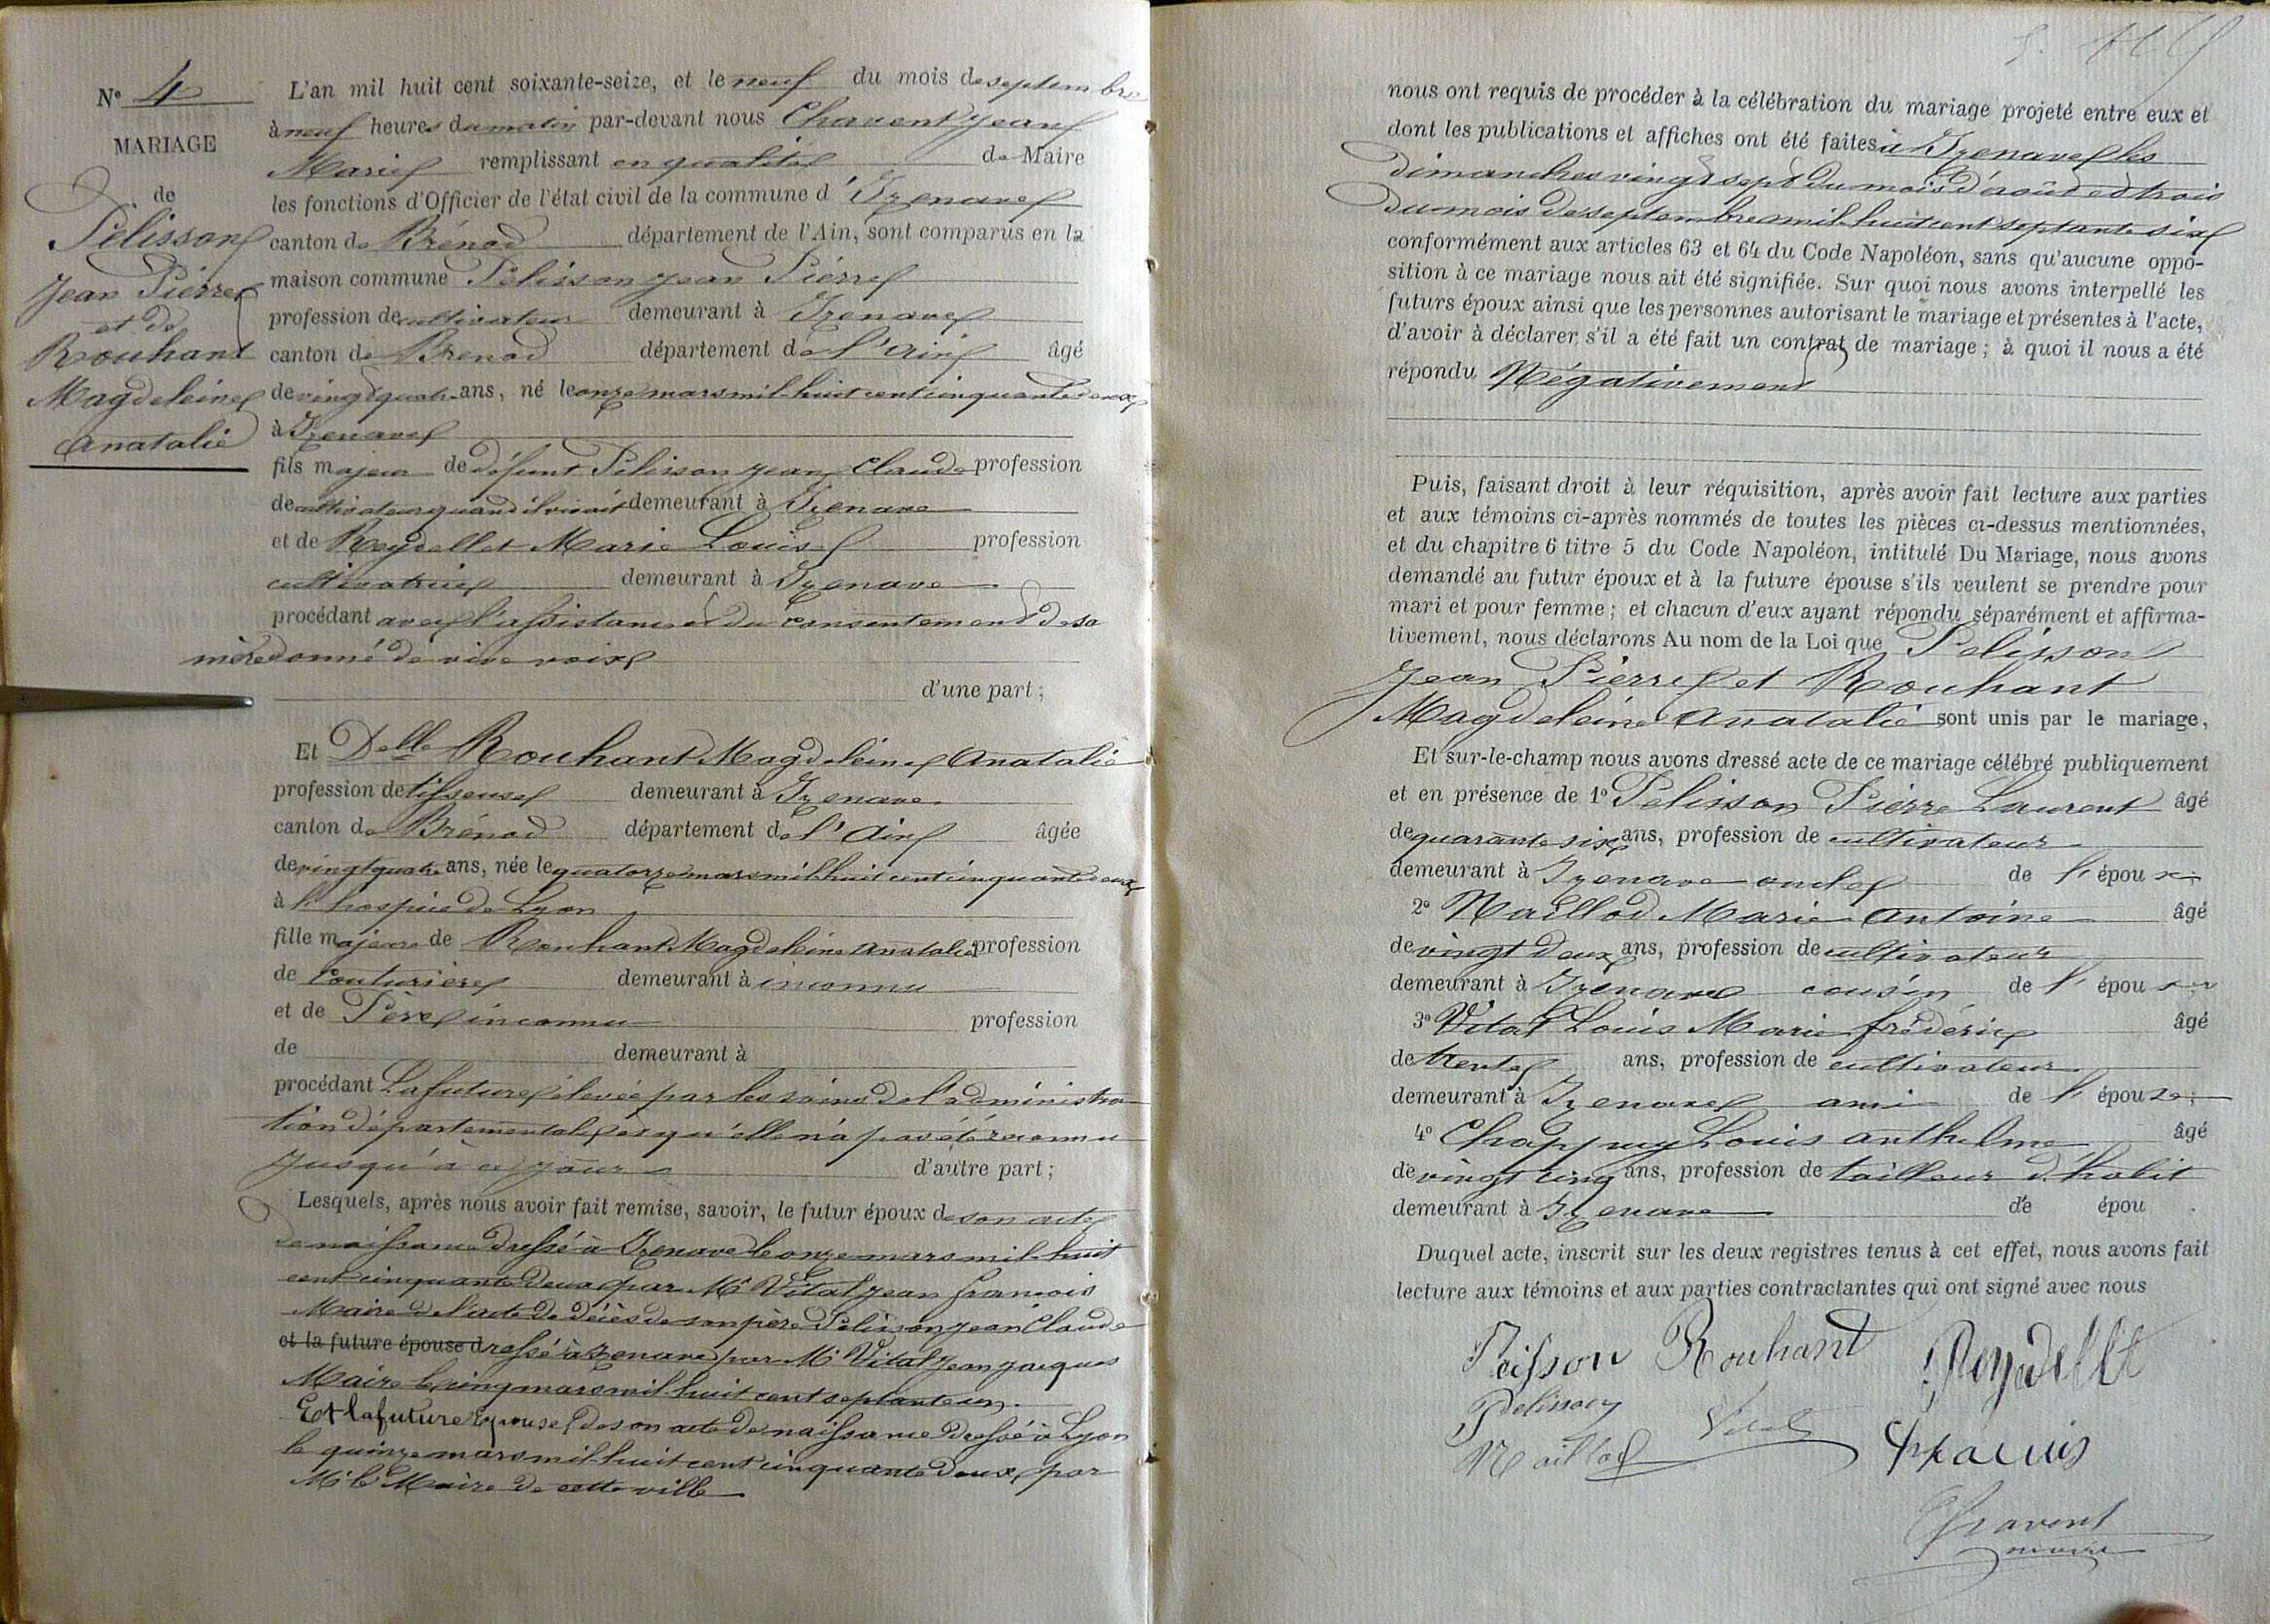 N° 4
MARIAGE
de
Pélisson
Jean Pierre
et de
Rouhant
Magdeleine
Anatalie
L'an mil huit cent soixante-seize, et le neuf du mois de septembre
à neuf heures du matin par-devant nous Chavent Jean
Marie remplissant en qualité de Maire
les fonctions d'Officier de l'état civil de la commune d'Izenave
canton de Brénod département de l'Ain, sont comparus en la
maison commune Pélisson Jean Pierre
profession de cultivateur demeurant à Izenave
canton de Brénod département de l'Ain âgé
de vingt quatre ans, né le onze mars mil huit cent cinquante deux
à Izenave
fils majeur de défunt Pélisson Jean Claude profession
de cultivateur quand il vivait demeurant à Izenave
et de Reydellet Marie Louise profession
cultivatrice demeurant à Izenave
procédant avec l'assistance et du consentement de sa
mère donné de vive voix
d'une part ;
Et Delle Rouhant Magdeleine Anatalie
profession de tisseuse demeurant à Izenave
canton de Brénod département de l'Ain âgée
de vingt quatre ans, née le quatorze mars mil huit cent cinquante deux
à l'hospice de Lyon
fille majeure de Rouhant Magdeleine Anatalie profession
de couturière demeurant à inconnu
et de Père inconnu profession
de demeurant à
procédant La future élevée par les soins de l'administra
tion départementale et qu'elle n'a pas été reconnu
jusqu'à ce jour d'autre part ;
Lesquels, après nous avoir fait remise, savoir, le futur époux de son acte
de naissance dressé à Izenave le onze mars mil huit
cent cinquante deux par Mr Vital Jean François
Maire de l'acte de décès de son père Pélisson Jean Claude
et la future épouse dressé à Izenave par Mr Vital Jean Jacques
Maire le cinq mars mil huit cent septante un.
Et la future Epouse de son acte de naissance dressé à Lyon
le quinze mars mil huit cent cinquante deux par
Mr le Maire de cette ville
nous ont requis de procéder à la célébration du mariage projeté entre eux et
dont les publications et affiches ont été faites à Izenave les
dimanches vingt sept du mois d'août et trois
du mois de septembre mil huit cent septante six
conformément aux articles 63 et 64 du Code Napoléon, sans qu'aucune oppo-
sition à ce mariage nous ait été signifiée. Sur quoi nous avons interpellé les
futurs époux ainsi que les personnes autorisant le mariage et présentes à l'acte,
d'avoir à déclarer, s'il a été fait un contrat de mariage ; à quoi il nous a été
répondu Négativement
Puis, faisant droit à leur réquisition, après avoir fait lecture aux parties
et aux témoins ci-après nommés de toutes les pièces ci-dessus mentionnées,
et du chapitre 6 titre 5 du Code Napoléon, intitulé Du Mariage, nous avons
demandé au futur époux et à la future épouse s'ils veulent se prendre pour
mari et pour femme ; et chacun d'eux ayant répondu séparément et affirma-
tivement, nous déclarons Au nom de la Loi que Pelisson
Jean Pierre et Rouhant
Magdeleine Anatalie sont unis par le mariage,
Et sur-le-champ nous avons dressé acte de ce mariage célébré publiquement
et en présence de 1° Pelisson Pierre Laurent âgé
de quarante six ans, profession de cultivateur
demeurant à Izenave oncle de l'époux
2° Maillod Marie Antoine âgé
de vingt deux ans, profession de cultivateur
demeurant à Izenave cousin de l'époux
3° Vital Louis Marie frédéric âgé
de trente ans, profession de cultivateur
demeurant à Izenave ami de l'épouse ;
4° Chappuy Louis anthelme âgé
de vingt cinq ans, profession de tailleur d'habit
demeurant à Izenave de épou
Duquel acte, inscrit sur les deux registres tenus à cet effet, nous avons fait
lecture aux témoins et aux parties contractantes qui ont signé avec nous
Rouhant Reydellet
Pelisson Vital
Maillod
Chavent
maire